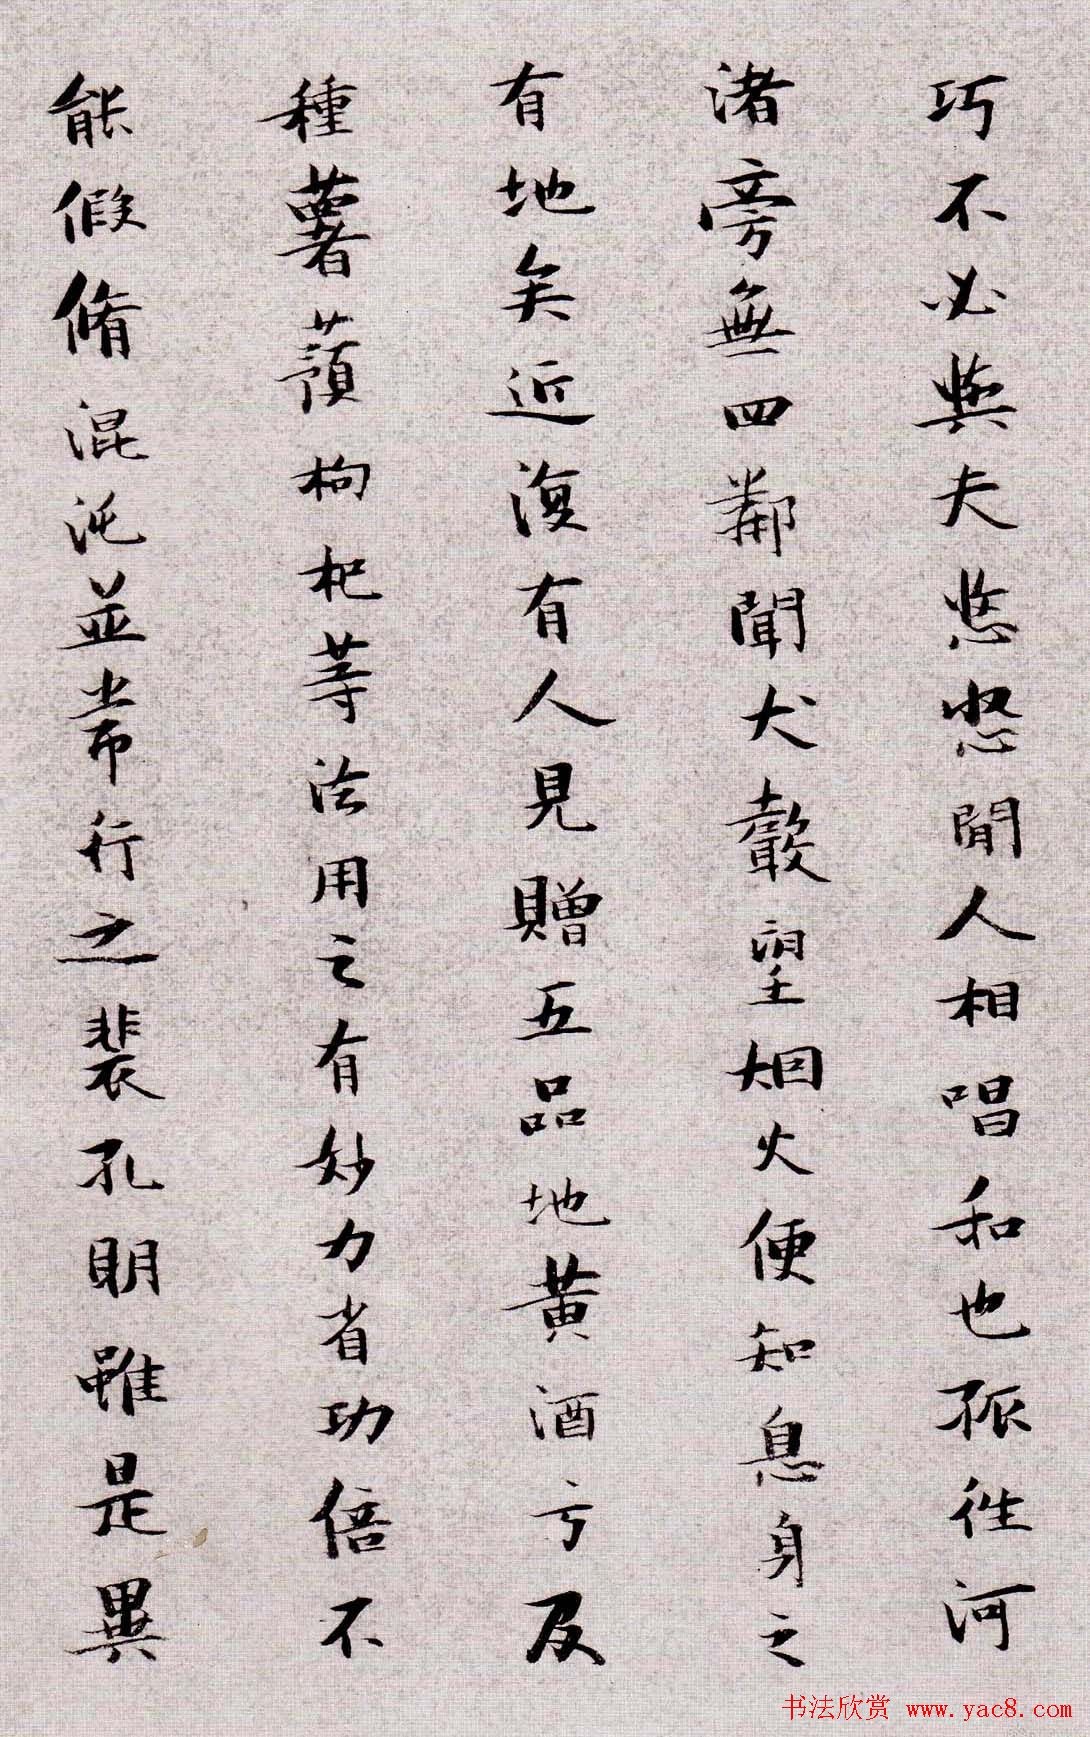 巧不必與夫悠悠閒人相唱和也孤往河
渚旁無四鄰聞犬聲望烟火便知息身之
有地矣近復有人見贈五品地黃酒方及
種薯蕷枸杞等法用之有妙力省功倍不
能假脩混沌並常行之裴孔明雖是異
书法欣赏 www.yac8.com